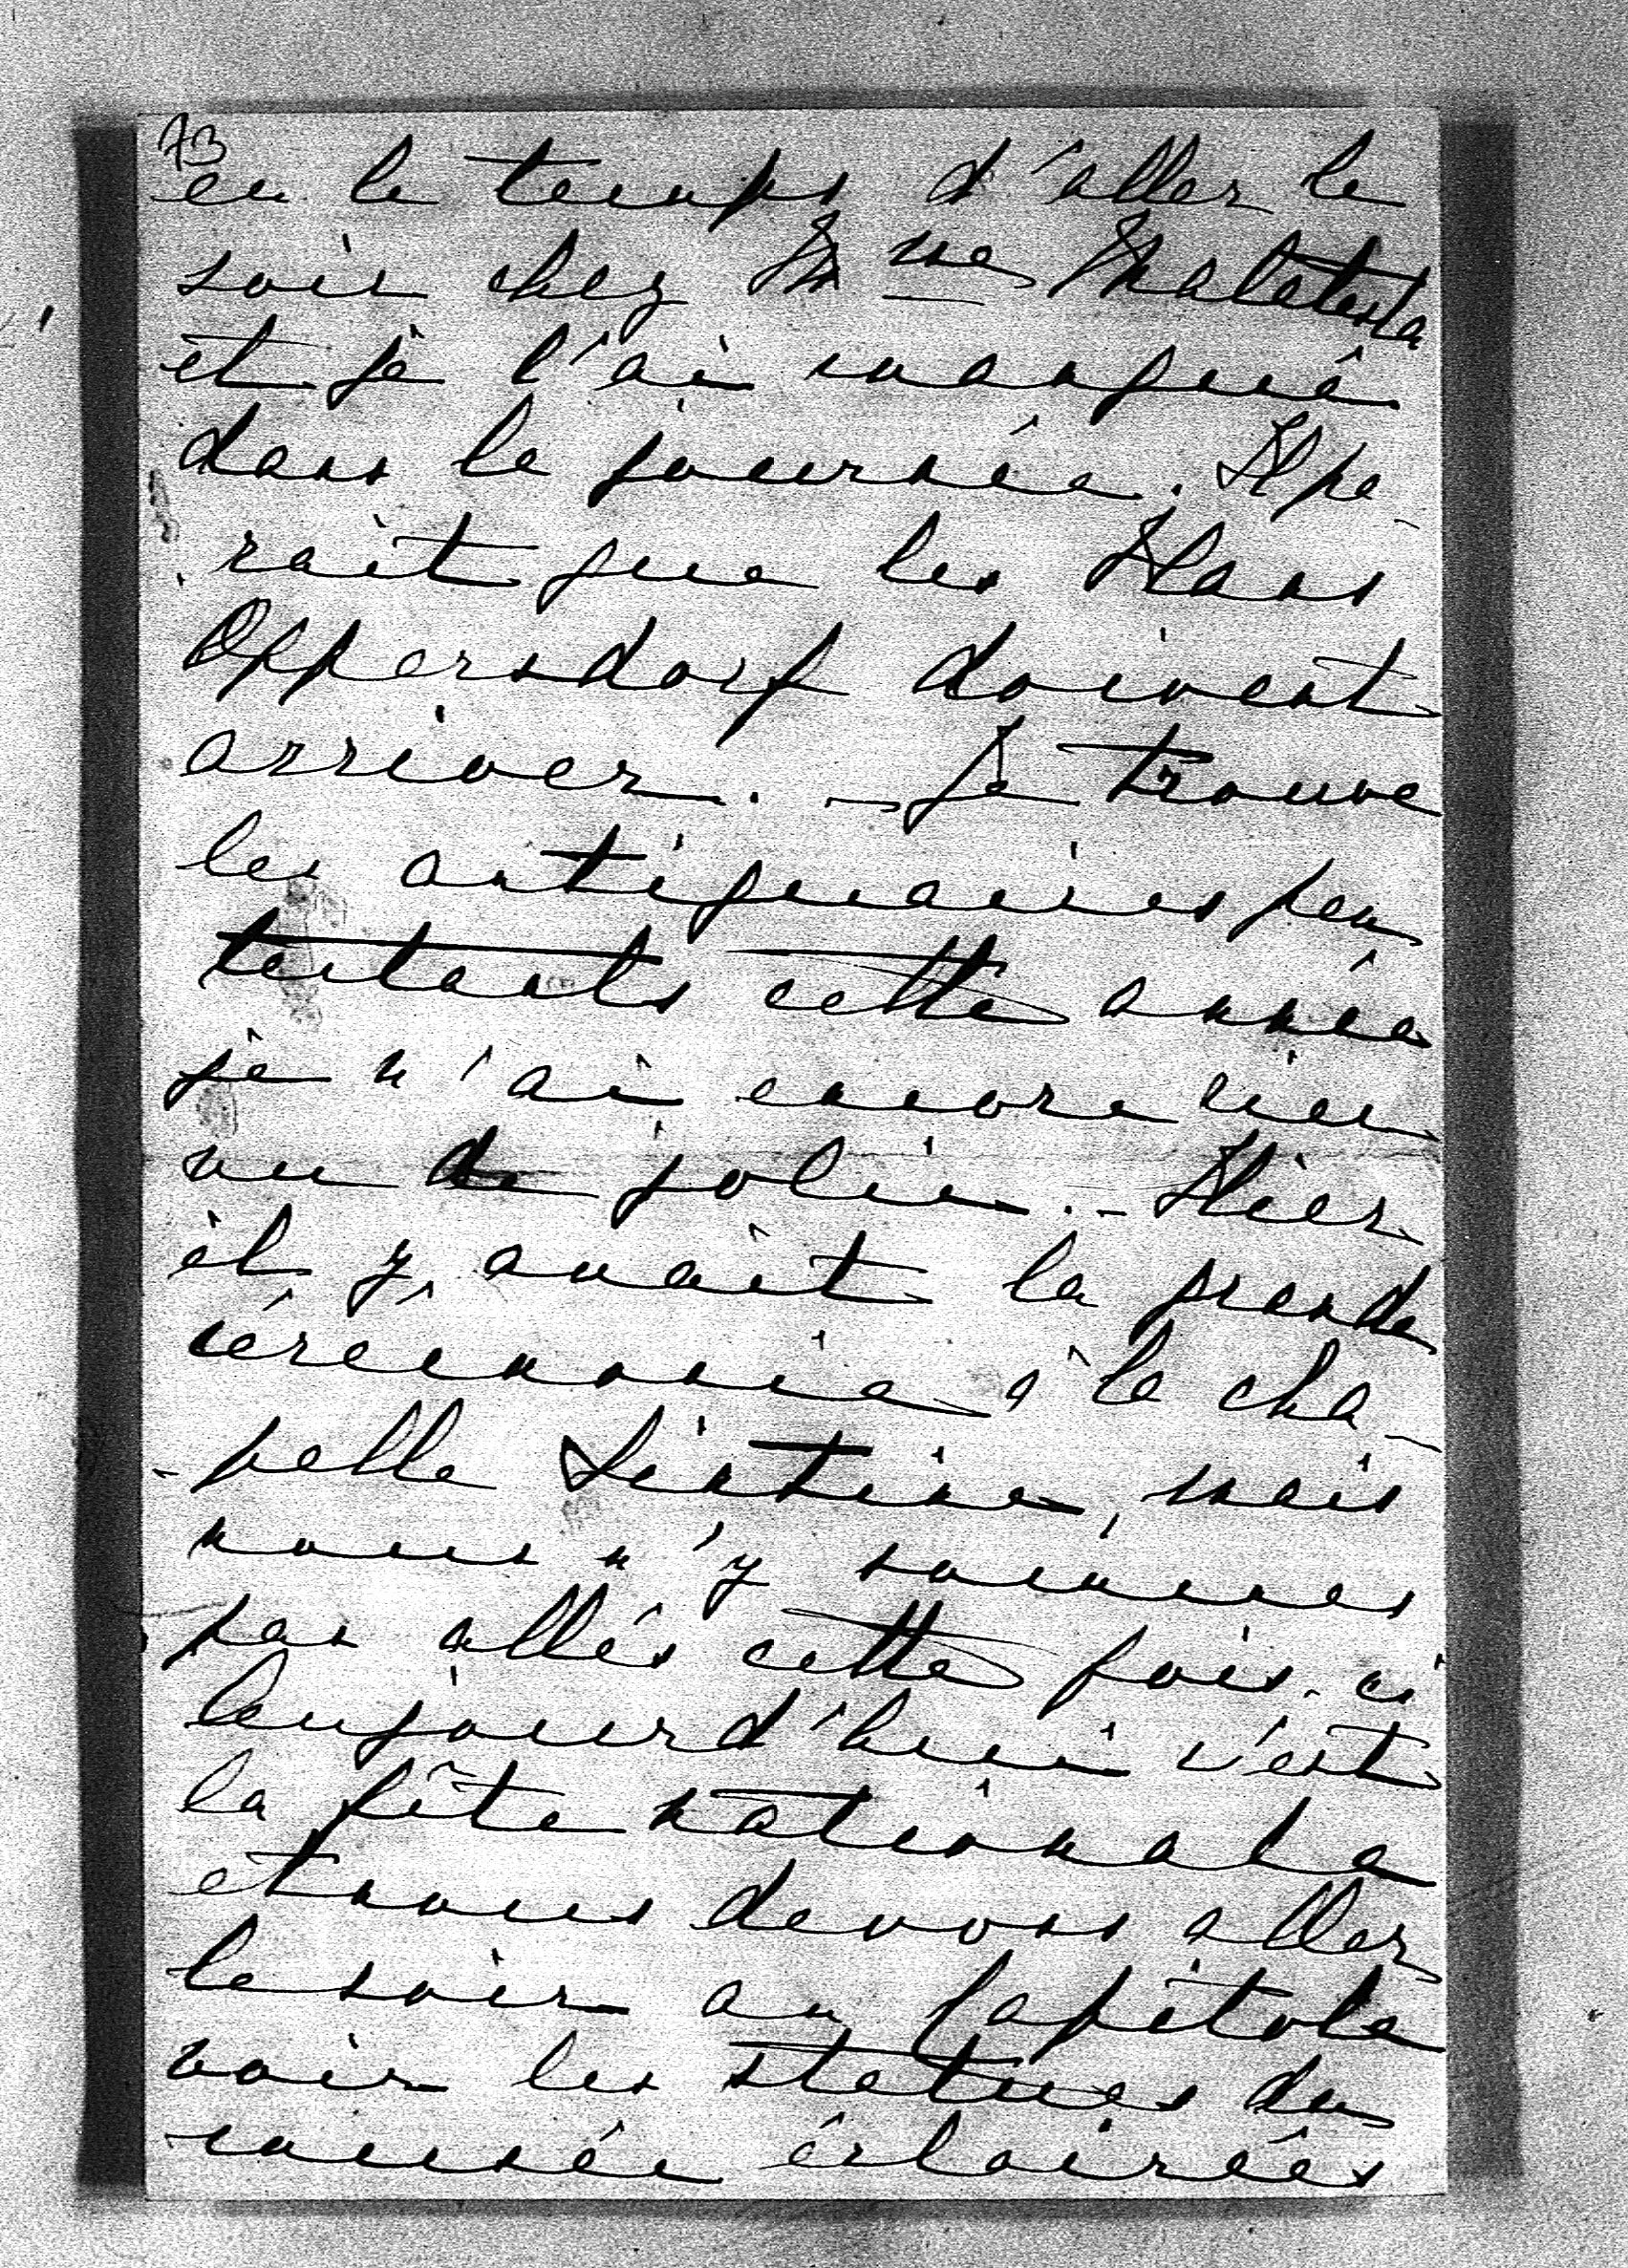 73
eu le temps d'aller le
soir chez Mme Malatesta
et je l'ai manqué
dans la journée. Il pa
raît que les Hans
Oppersdorf doivent
arriver. – Je trouve
les antiquaires peu
tentants cette année
je n'ai encore rien
vu de joli. – Hier
il y avait la grande
cérémonie à la cha-
-pelle Sixtine, mais
nous n'y sommes
pas allés cette fois-ci
Aujourd'hui c'est
la fête nationale
et nous devons aller
le soir au Capitole
voir les statues du
musée éclairées